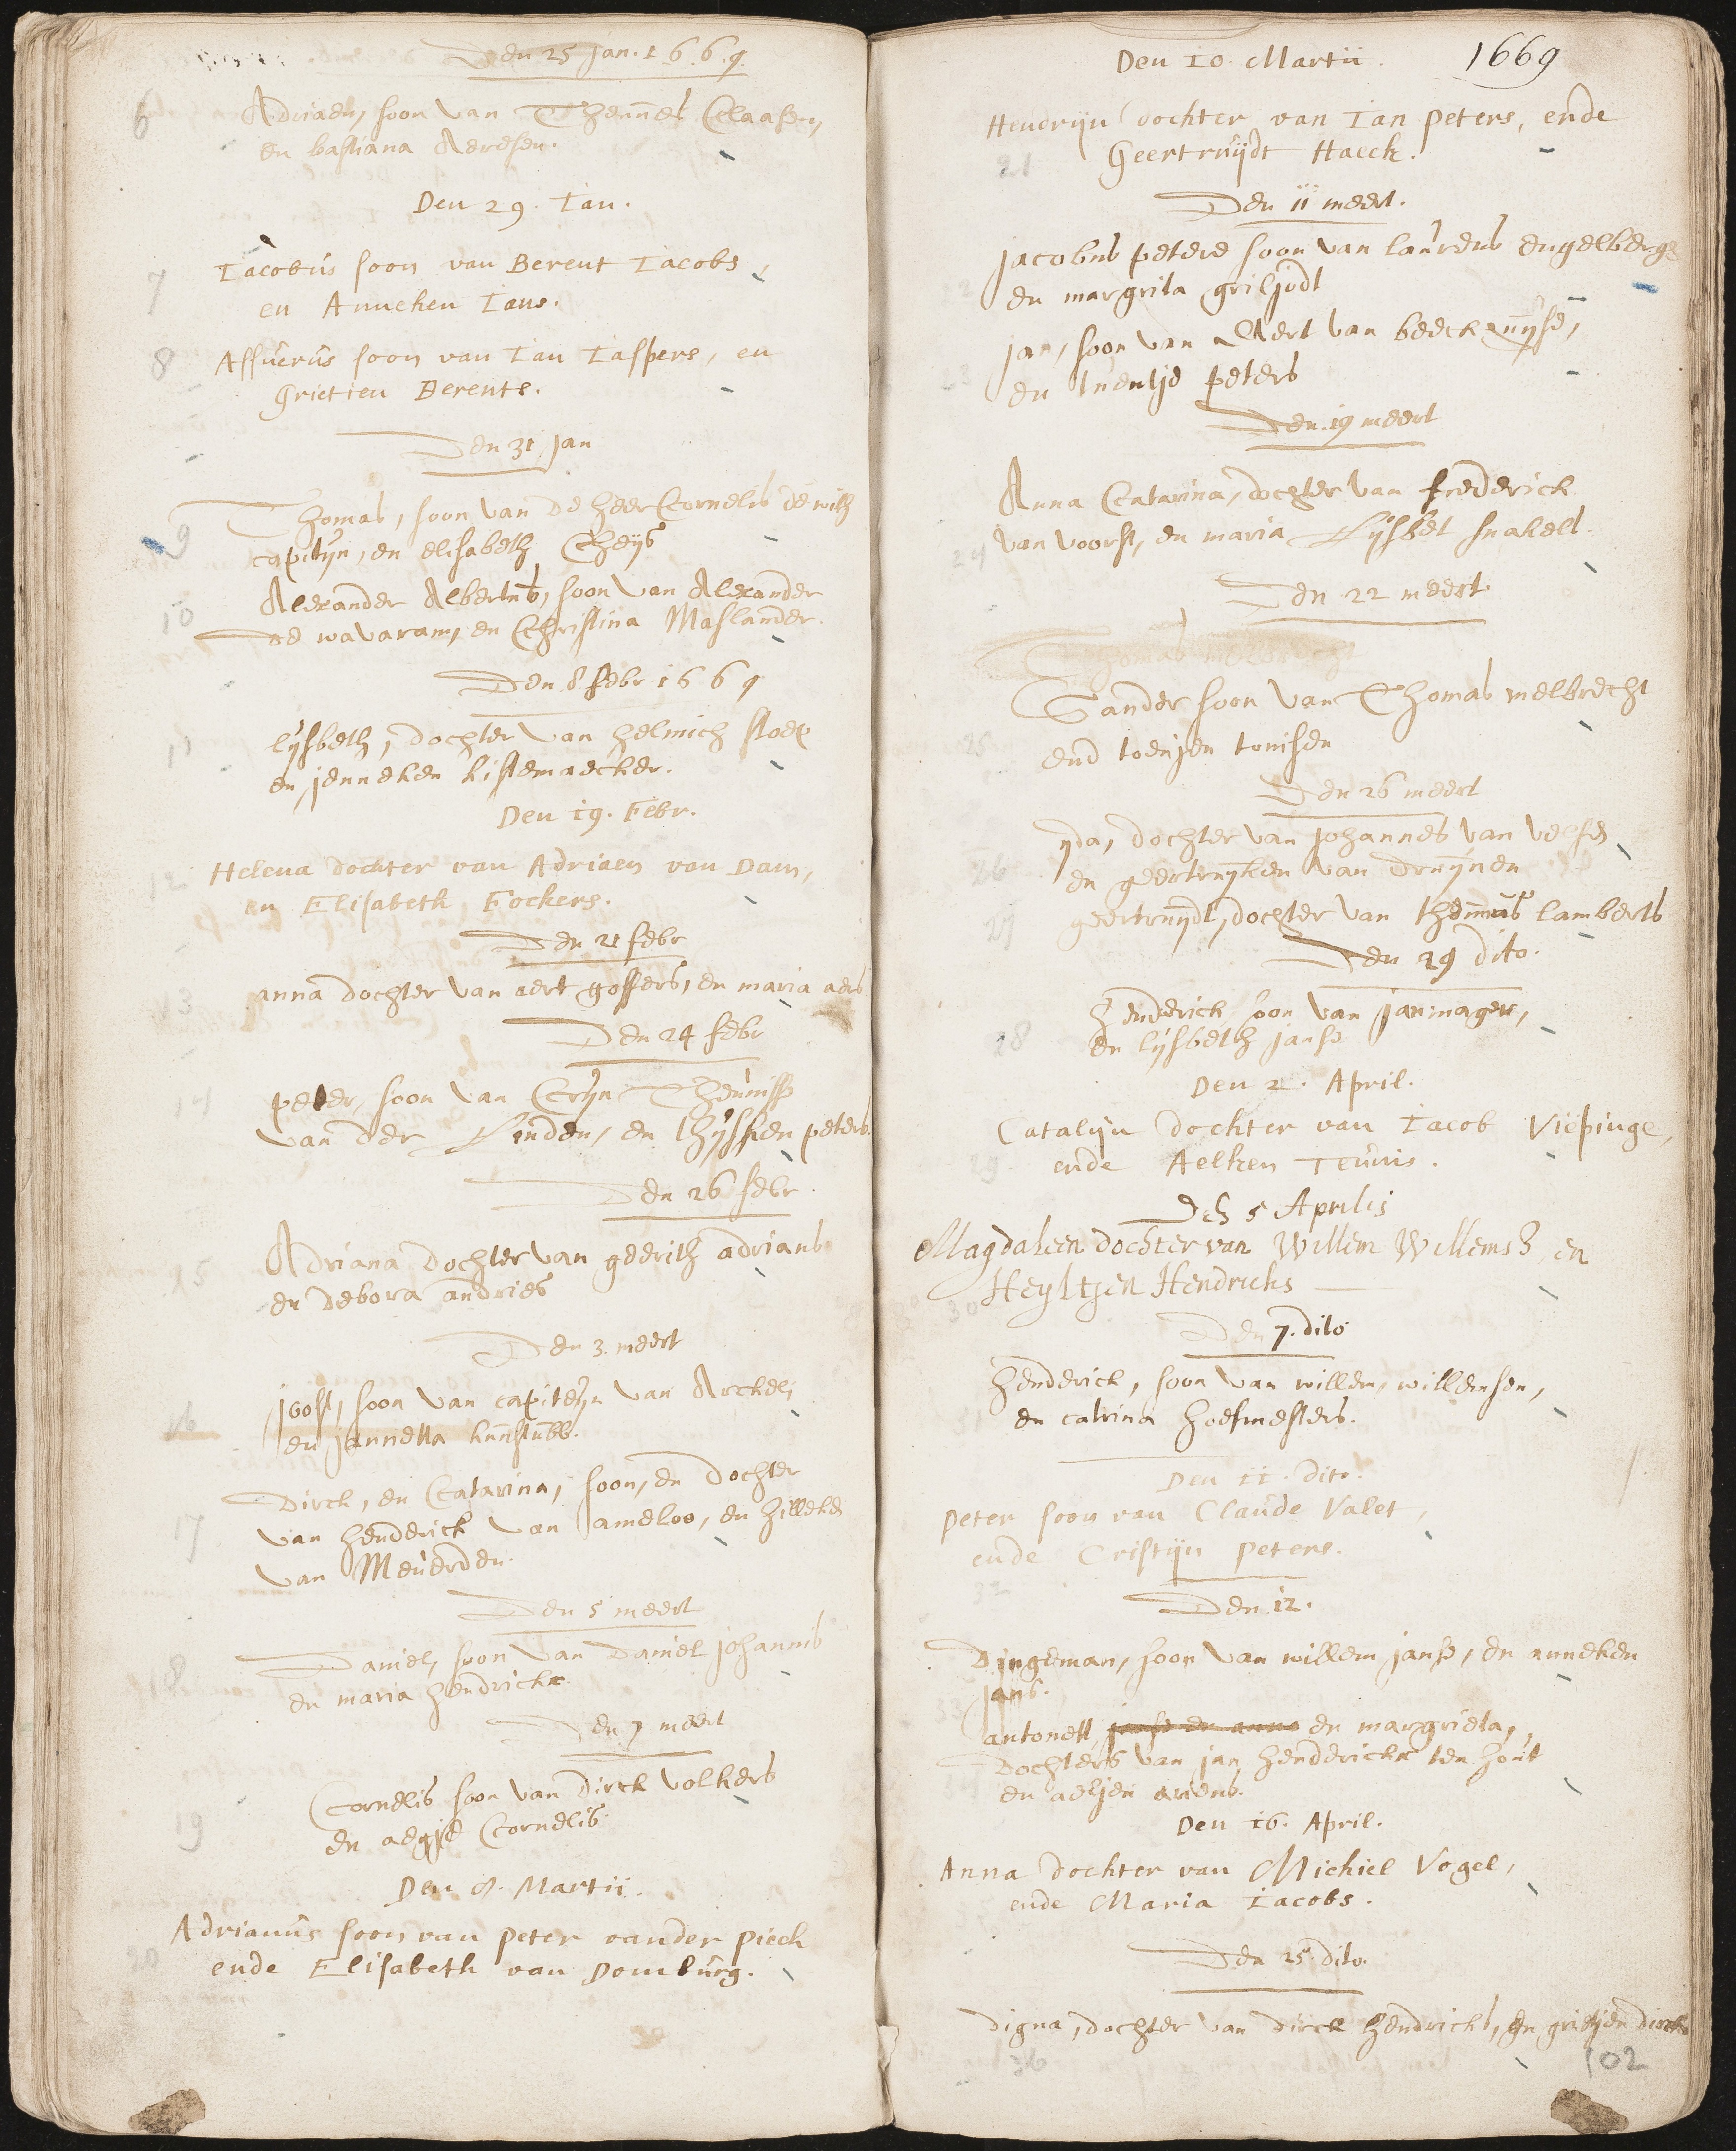 Den 25 Jan. 1669.
6 Adriaen, soon van Theunes Claasen,
en bastiana Aersen.
Den 29. Ian.
7 Iacobus soon van Berent Iacobs,
en Anneken Ians.
8 Assuerus soon van Ian Iaspers, en
Grietien Berents.
Den 31 Jan
9 Thomas, soon van de heer Cornelis de with
capityn, en elisabeth Theys
10 Alexander Albertus, soon van Alexander
de wavaram, en Christina Maslander.
Den 8 febr 1669
11 lysbeth, dochter van helmich stoep
en jenneken kistemaecker.
Den 19. Febr.
12 Helena dochter van Adriaen van Dam,
en Elisabeth Fockers.
Den 21 febr
13 anna dochter van aert goffers, en maria aers
Den 24 febr
14 peter, soon van Cryn Theunisse
van der Linden, en thysken peters.
Den 26 febr.
15 Adriana dochter van geerith adrians
en debora andries
Den 3. meert
16 joost, soon van capiteyn van Arckel,
en jannetta
17 Dirck, en Catarina, soon, en dochter
van henderick van ameloo, en hilleke
van Meuerden.
Den 5 meert
18 Daniel, soon van Daniel johannis
en maria hendrickx.
Den 7 meert
19 Cornelis soon van dirck volkers
en aegje Cornelis
Den 8. Martii.
20 Adrianus soon van Peter vander Pieck
ende Elisabeth van Domburg.
Den 10. Martii. 1669
Hendrijn dochter van Ian Peters, ende
21 Geertruijdt Haeck.
Den 11 meert.
jacobus petere soon van laurens engelberge
22 en margrita griljodt
jan, soon van Aert van beeck
23 en tuentje peters
Den 19 meert
Anna Catarina, dochter van frederick
24 van voorst, en maria Lysbet snakell.
Den 22 meert
Thomas melbrecht
Sander soon van Thomas melbrecht
25 end toenjen tonisen
Den 26 meert
yda, dochter van johannes van velse
26 en geertruyken van Drunen
27 geertruydt, dochter van themas lamberts
Den 29 dito.
henderick soon van jan magers,
28 en lysbeth janse
Den 2. April.
Catalijn dochter van Iacob Viepinge,
29 ende Aelken Teunis.
Den 5 Aprilis
Magdaleen dochter van Willem Willems, en
30 Heyltjen Hendricks
Den 7. dito
henderick, soon van willem willemsen,
en catrina hoefmesters.
Den 11. dito.
Peter soon van Claude Valet,
ende Cristijn Peters.
32
Den 12.
Dingeman, soon van willem janse, en anneken
33 jans.
antonett, janse en anna en margrieta,
dochters van jan henderickx ten hout
34 en aeltjen ariens.
Den 16. April.
Anna dochter van Michiel Vogel,
ende Maria Iacobs.
Den 25 dito.
digna, dochter van dirck hendricks, en grietjen dircks
36 102